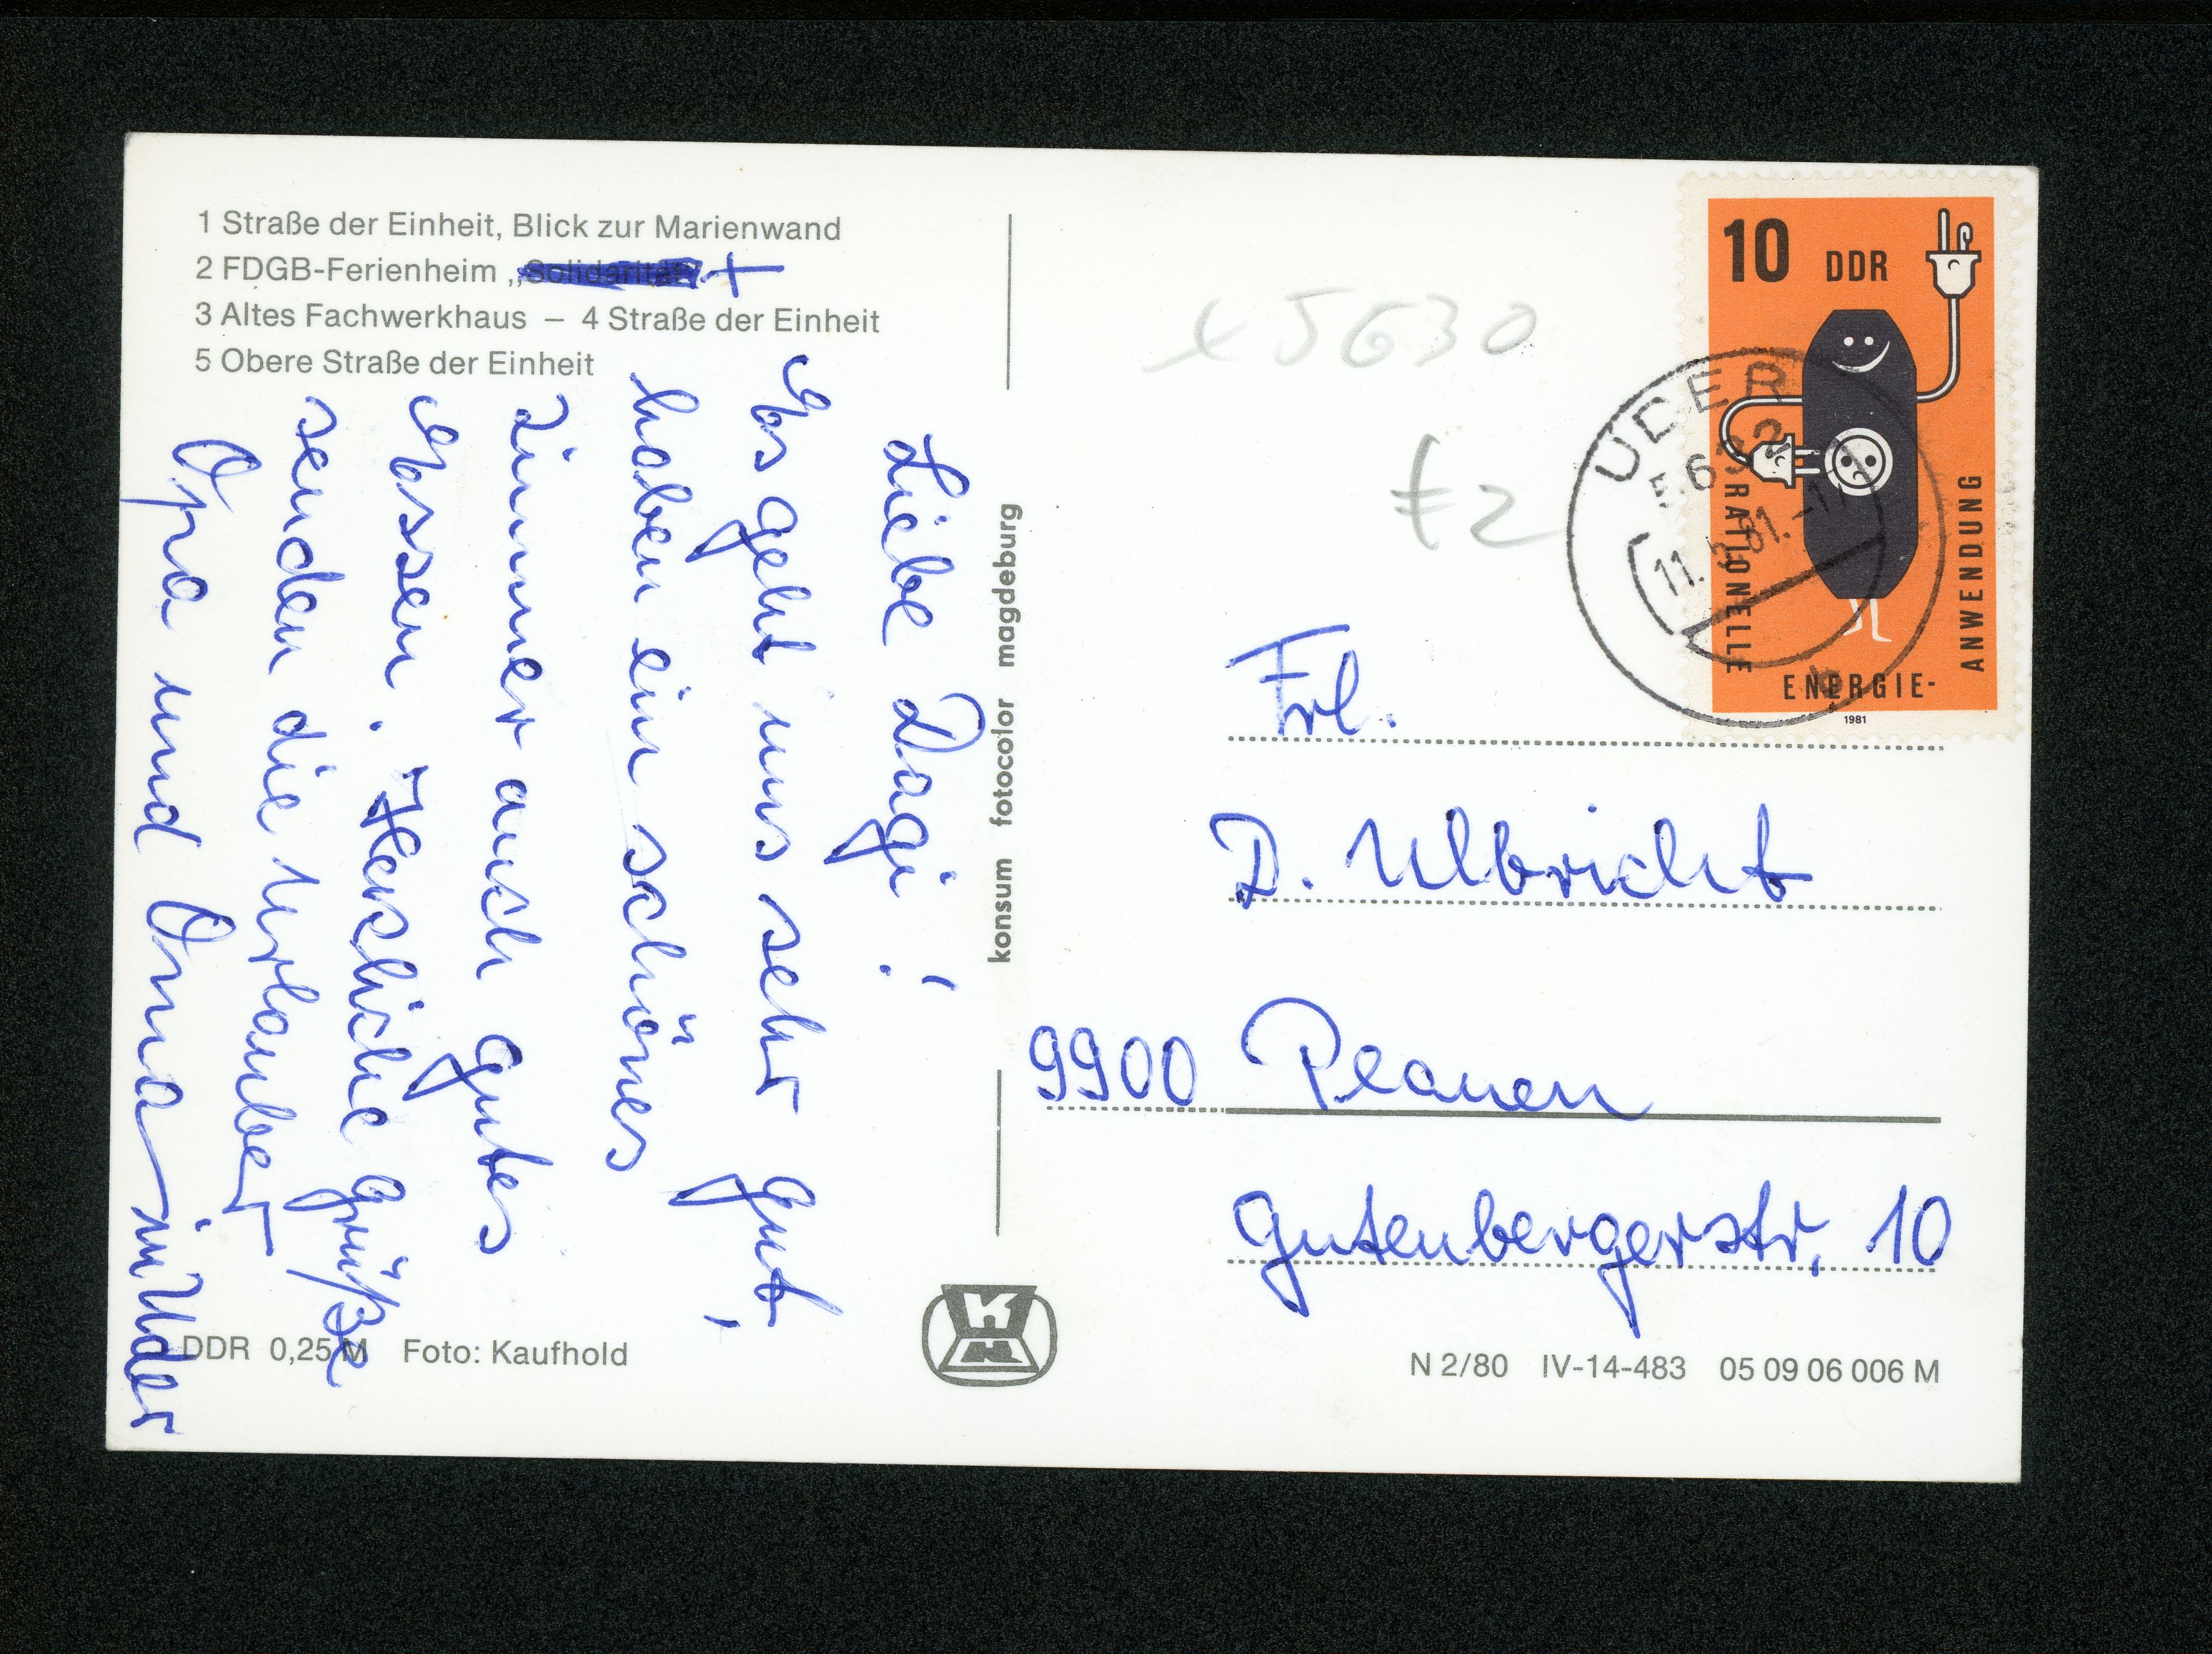 1 Straße der Einheit, Blick zur Marienwand
2 FDGB-Ferienheim „Solidarität“ +
3 Altes Fachwerkhaus – 4 Straße der Einheit
5 Obere Straße der Einheit
Liebe Dagi!
Es geht uns sehr gut,
haben ein schönes
Zimmer auch gutes
Essen. Herzliche Grüße
senden die Urlauber
Opa und Oma in Uder
DDR 0,25 M Foto: Kaufhold
konsum fotocolor magdeburg
5630
10 DDR
RATIONELLE
ENERGIE-
ANWENDUNG
1981
UDER
5632
b
Frl.
D. Ulbricht
9900 Plauen
Gutenbergerstr. 10
N 2/80 IV-14-483 05 09 06 006 M